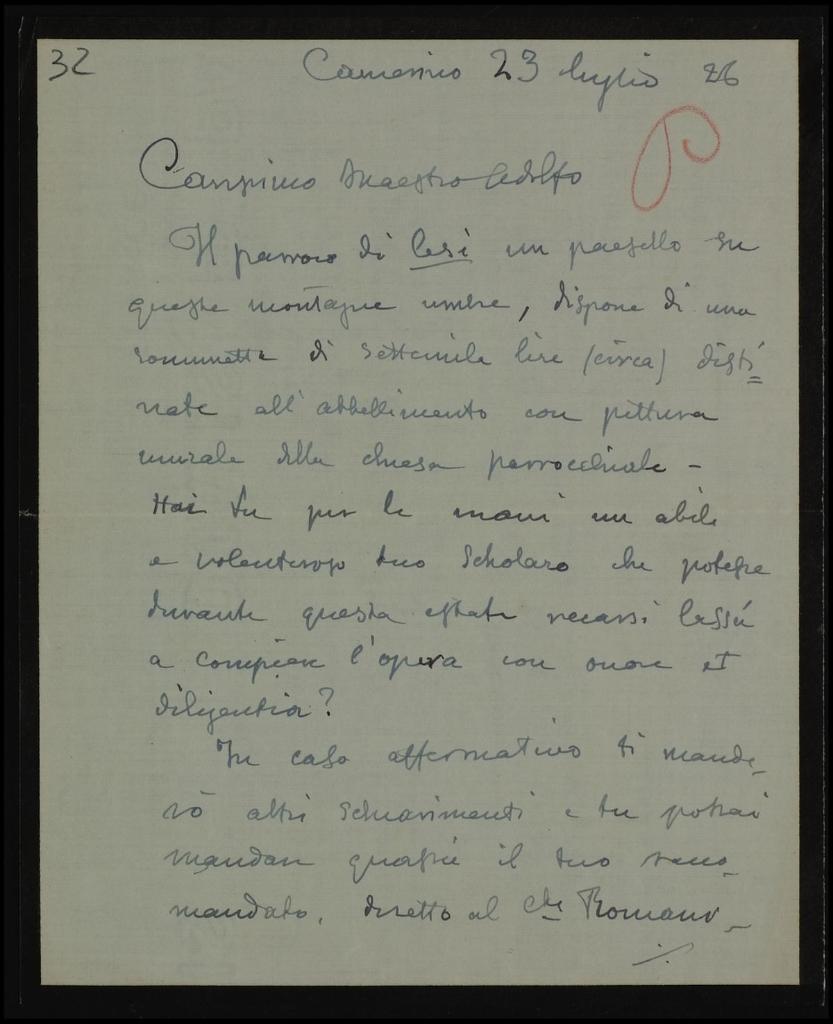 32
Camerino 23 luglio 26
P
Carissimo Maestro Adolfo
Il parroco di Cesi un paesello su
queste montagne umbre, dispone di una
sommetta di settemila lire (circa) desti=
nate all'abbellimento con pittura
murale della chiesa parrocchiale -
Hai tu per le mani un abile
e volenteroso tuo scholaro che potesse
durante questa estate recarsi lassù
a compiere l'opera con onore et
diligentia?
In caso affermativo ti mande_
rò altri schiarimenti e tu potrai
mandare quassù il tuo racco_
mandato, diretto al Cte Romani_